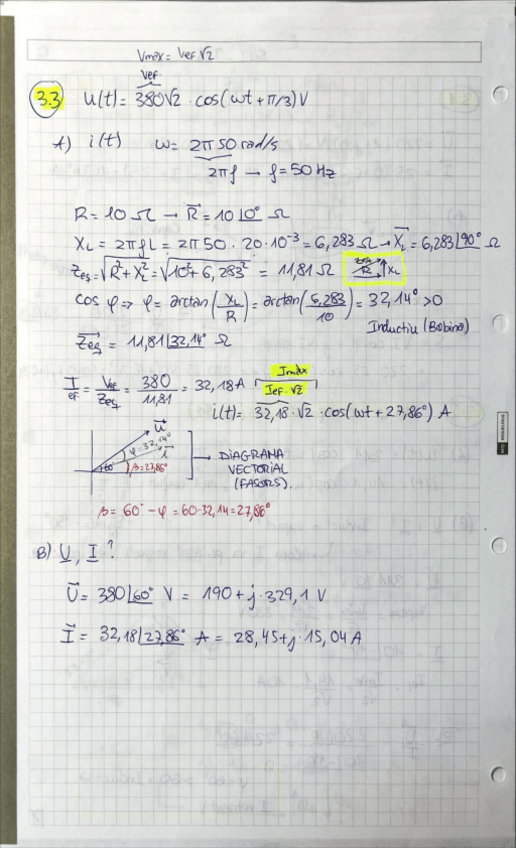 Vmàx = Vef √2
Vef
3.3 u(t) = 380√2 · cos(ωt + π/3) V
A) i(t) ω = 2π 50 rad/s
2πf → f = 50 Hz
R = 10 Ω → R⃗ = 10∠0° Ω
XL = 2πfL = 2π50 · 20·10⁻³ = 6,283 Ω → X⃗L = 6,283∠90° Ω
Zeq = √(R² + XL²) = √(10² + 6,283²) = 11,81 Ω Zeq R XL
cos φ ⇒ φ = arctan(XL/R) = arctan(6,283/10) = 32,14° > 0
Inductiu (Bobina)
Z⃗eq = 11,81∠32,14° Ω
Imàx
Ief = Vef/Zeq = 380/11,81 = 32,18 A Ief·√2
i(t) = 32,18·√2 · cos(ωt + 27,86°) A
u⃗
φ = 32,14° i⃗
60° β = 27,86°
→ DIAGRAMA
VECTORIAL
(FASORS).
β = 60° - φ = 60-32,14 = 27,86°
B) U, I?
U⃗ = 380∠60° V = 190 + j·329,1 V
I⃗ = 32,18∠27,86° A = 28,45 + j·15,04 A